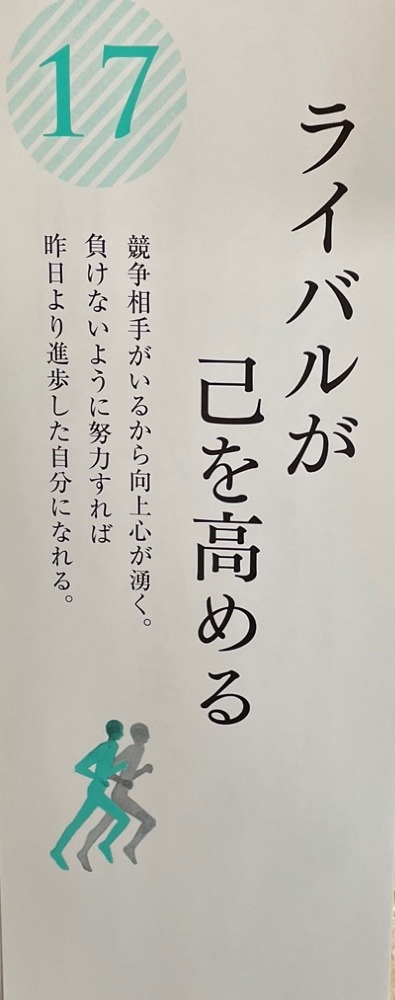 17
ライバルが
己を高める
競争相手がいるから向上心が湧く。
負けないように努力すれば
昨日より進歩した自分になれる。